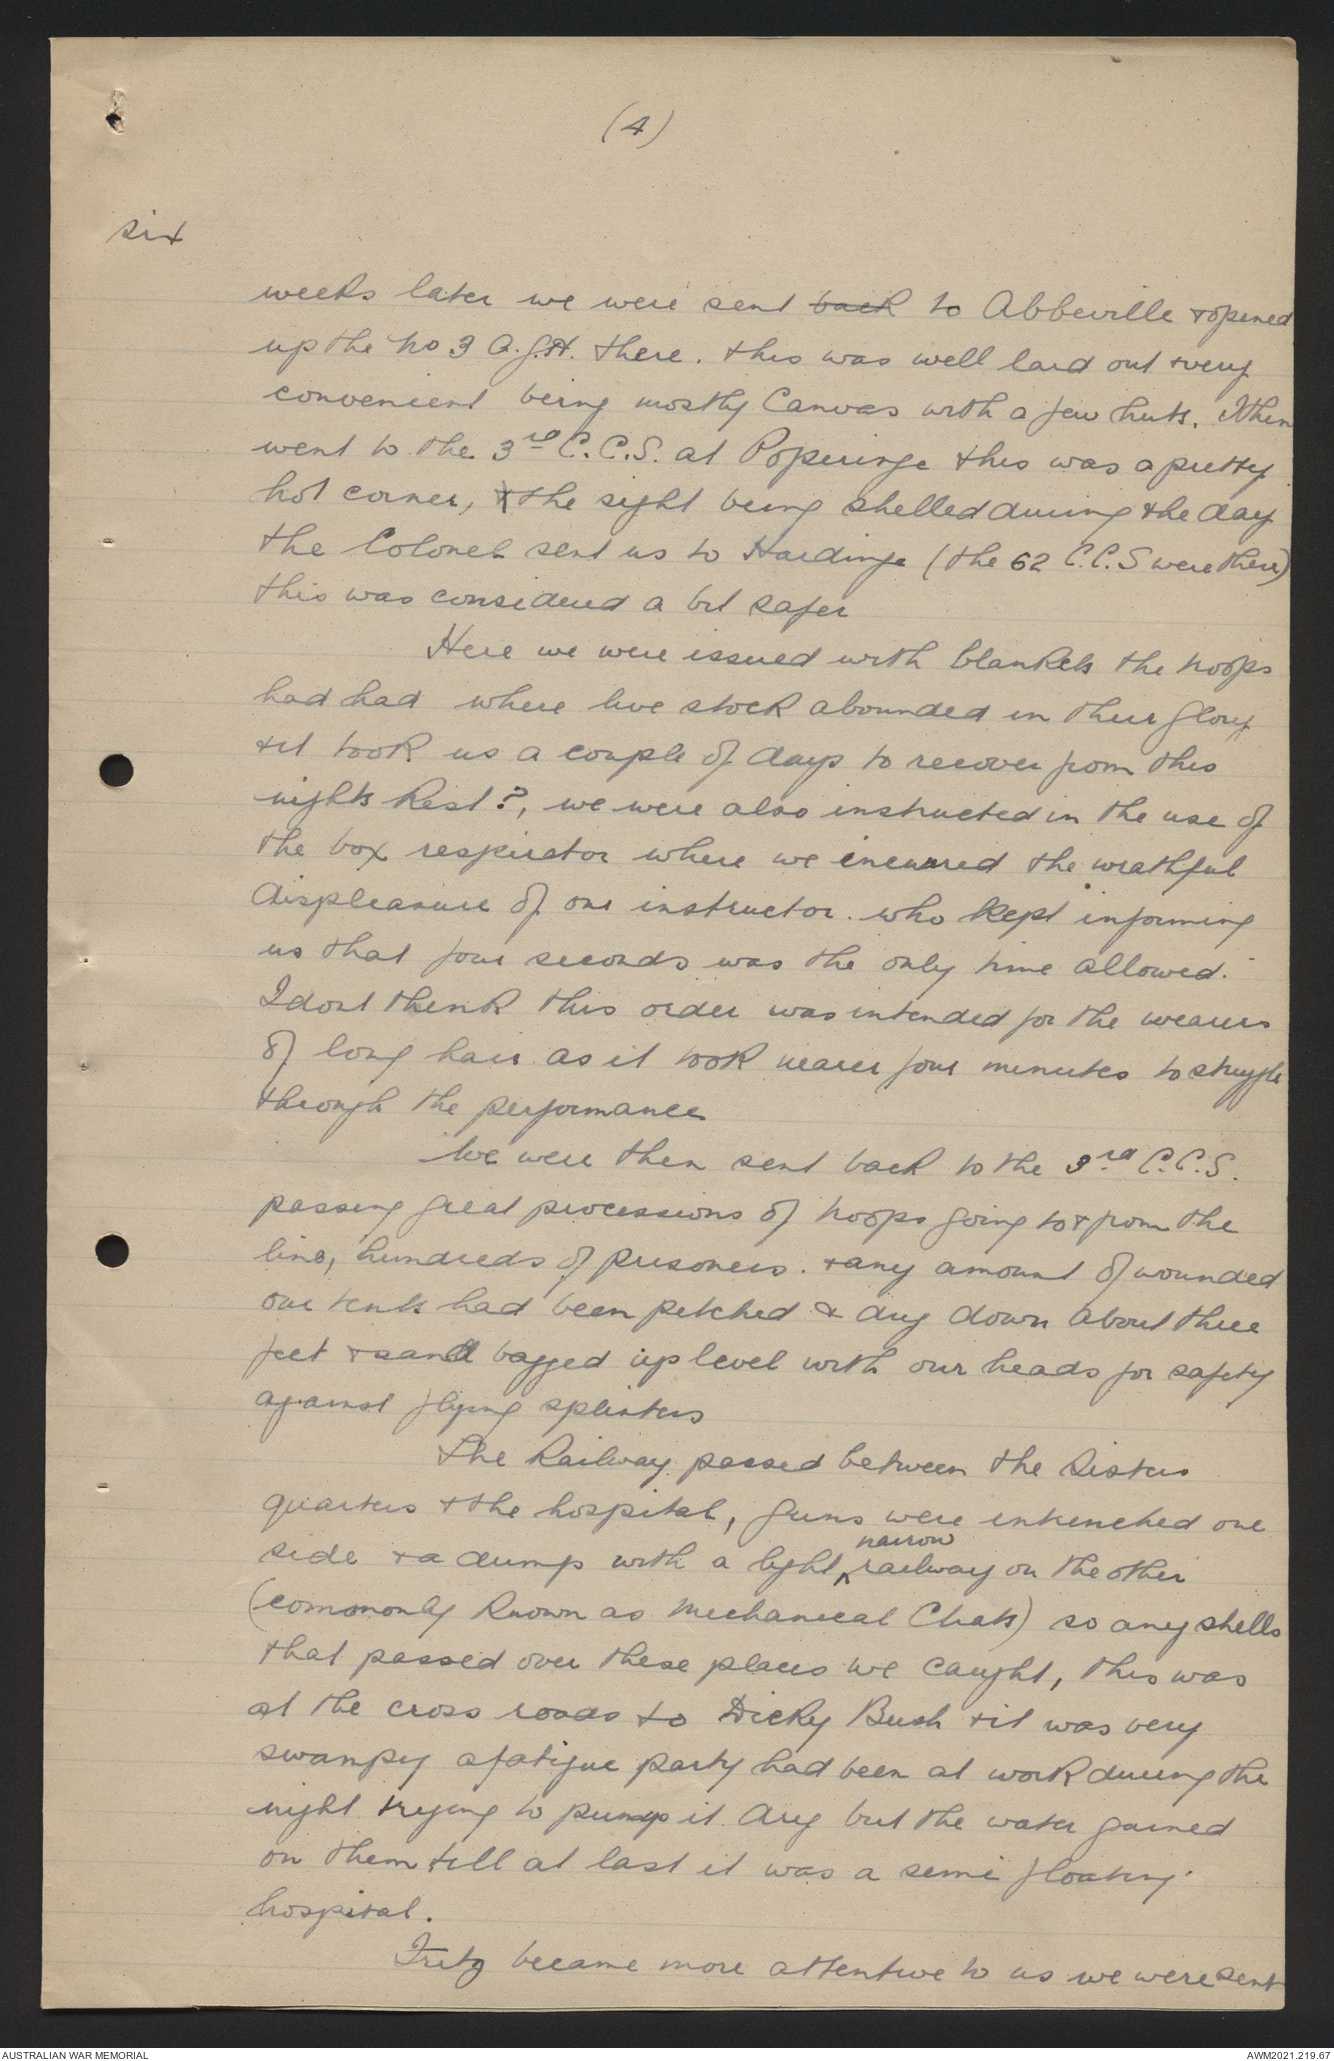 (4)
six
weeks later we were sent back to Abbeville & opened
up the No 3 A.G.H. there. this was well laid out & very
convenient being mostly Canvas with a few huts. I then
went to the 3rd C.C.S. at Poperinge this was a pretty
hot corner, & the sight being shelled during the day
the Colonel sent us to Hardinge (the 62 C.C.S were there)
this was considered a bit safer
Here we were issued with blankets the troops
had had where live stock abounded in their glory
& it took us a couple of days to recover from this
nights Rest?, we were also instructed in the use of
the box respirator where we incurred the wrathful
displeasure of our instructor. who kept informing
us that four seconds was the only time allowed.
I dont think this order was intended for the wearers
of long hair as it took nearer four minutes to struggle
through the performance
We were then sent back to the 3rd C.C.S.
passing great processions of troops going to & from the
line, hundreds of prisoners. & any amount of wounded
our tents had been pitched & dug down about three
feet & sand bagged up level with our heads for safety
against flying splinters
The Railway passed between the Sisters
quarters & the hospital, guns were entrenched one
side & a dump with a light narrow railway on the other
(comononly known as Mechanical Chats) so any shells
that passed over these places we caught, this was
at the cross roads to Dicky Bush & it was very
swampy a fatigue party had been at work during the
night trying to pump it dry but the water gained
on them till at last it was a semi floating
hospital.
Fritz became more attentive to us we were sent
AUSTRALIAN WAR MEMORIAL
AWM2021.219.67